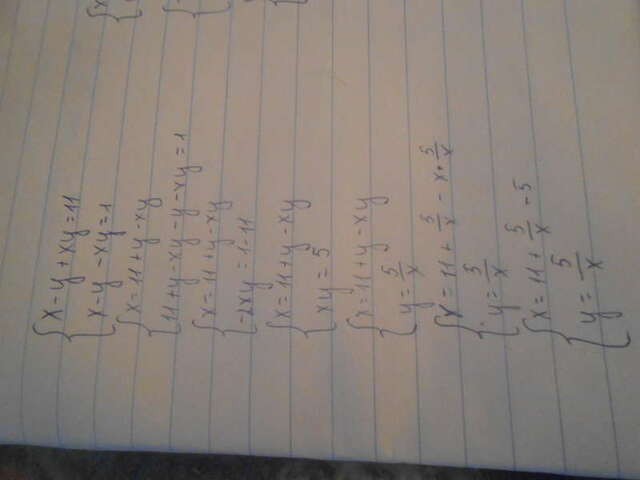 x-y+xy=11
x-y-xy=1
x=11+y-xy
11+y-xy-y-xy=1
x=11+y-xy
-2xy=1-11
x=11+y-xy
xy=5
x=11+y-xy
y=5/x
x=11+5/x-x·5/x
y=5/x
x=11+5/x-5
y=5/x